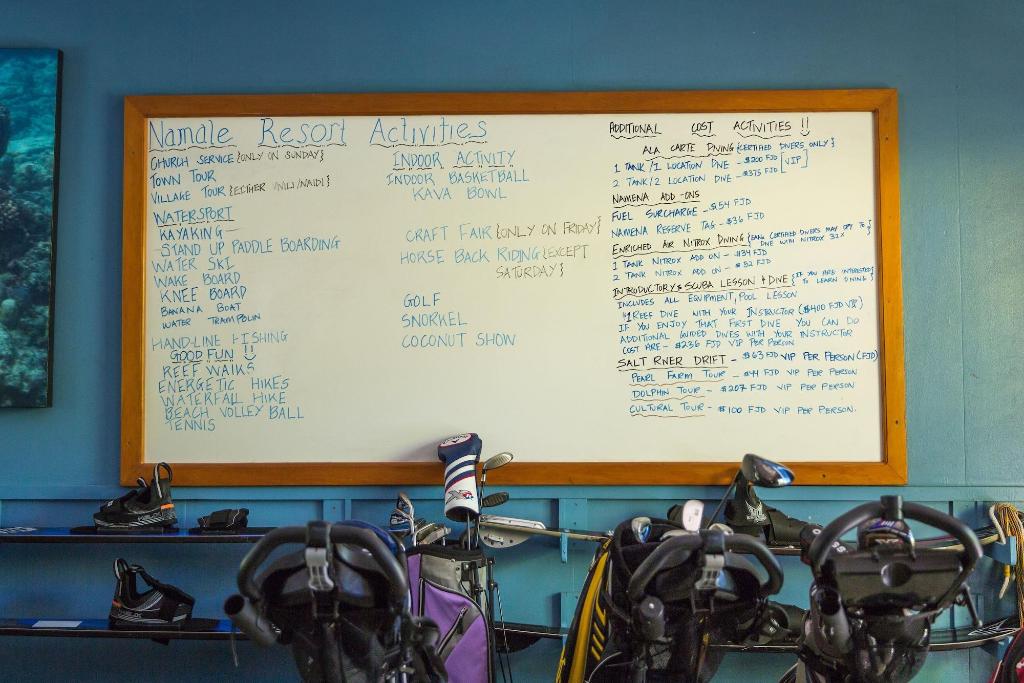 Namale Resort Activities
CHURCH SERVICE {ONLY ON SUNDAY}
TOWN TOUR
VILLAGE TOUR {EITHER VIVILI/NAIDI}
WATERSPORT
KAYAKING
STAND UP PADDLE BOARDING
WATER SKI
WAKE BOARD
KNEE BOARD
BANANA BOAT
WATER TRAMPOLIN
HAND-LINE FISHING
GOOD FUN !!
REEF WALKS
ENERGETIC HIKES
WATERFALL HIKE
BEACH VOLLEY BALL
TENNIS
INDOOR ACTIVITY
INDOOR BASKETBALL
KAVA BOWL
CRAFT FAIR {ONLY ON FRIDAY}
HORSE BACK RIDING {EXCEPT
SATURDAY}
GOLF
SNORKEL
COCONUT SHOW
ADDITIONAL COST ACTIVITIES !!
ALA CARTE DIVING {CERTIFIED DIVERS ONLY}
1 TANK/1 LOCATION DIVE - $200 FJD [VIP]
2 TANK/2 LOCATION DIVE - $375 FJD
NAMENA ADD-ONS
FUEL SURCHARGE - $54 FJD
NAMENA RESERVE TAG - $36 FJD
ENRICHED AIR NITROX DIVING {EANX CERTIFIED DIVERS MAY OPT TO
DIVE WITH NITROX 32%}
1 TANK NITROX ADD ON - $34 FJD
2 TANK NITROX ADD ON - $ 52 FJD
INTRODUCTORY SCUBA LESSON + DIVE {IF YOU ARE INTERESTED
TO LEARN DIVING}
INCLUDES ALL EQUIPMENT, POOL LESSON
1 REEF DIVE WITH YOUR INSTRUCTOR ($400 FJD VIP)
IF YOU ENJOY THAT FIRST DIVE YOU CAN DO
ADDITIONAL GUIDED DIVES WITH YOUR INSTRUCTOR
COST ARE - $236 FJD VIP PER PERSON
SALT RIVER DRIFT - $63 FJD VIP PER PERSON (FJD)
PEARL FARM TOUR - $44 FJD VIP PER PERSON
DOLPHIN TOUR - $207 FJD VIP PER PERSON
CULTURAL TOUR - $100 FJD VIP PER PERSON.